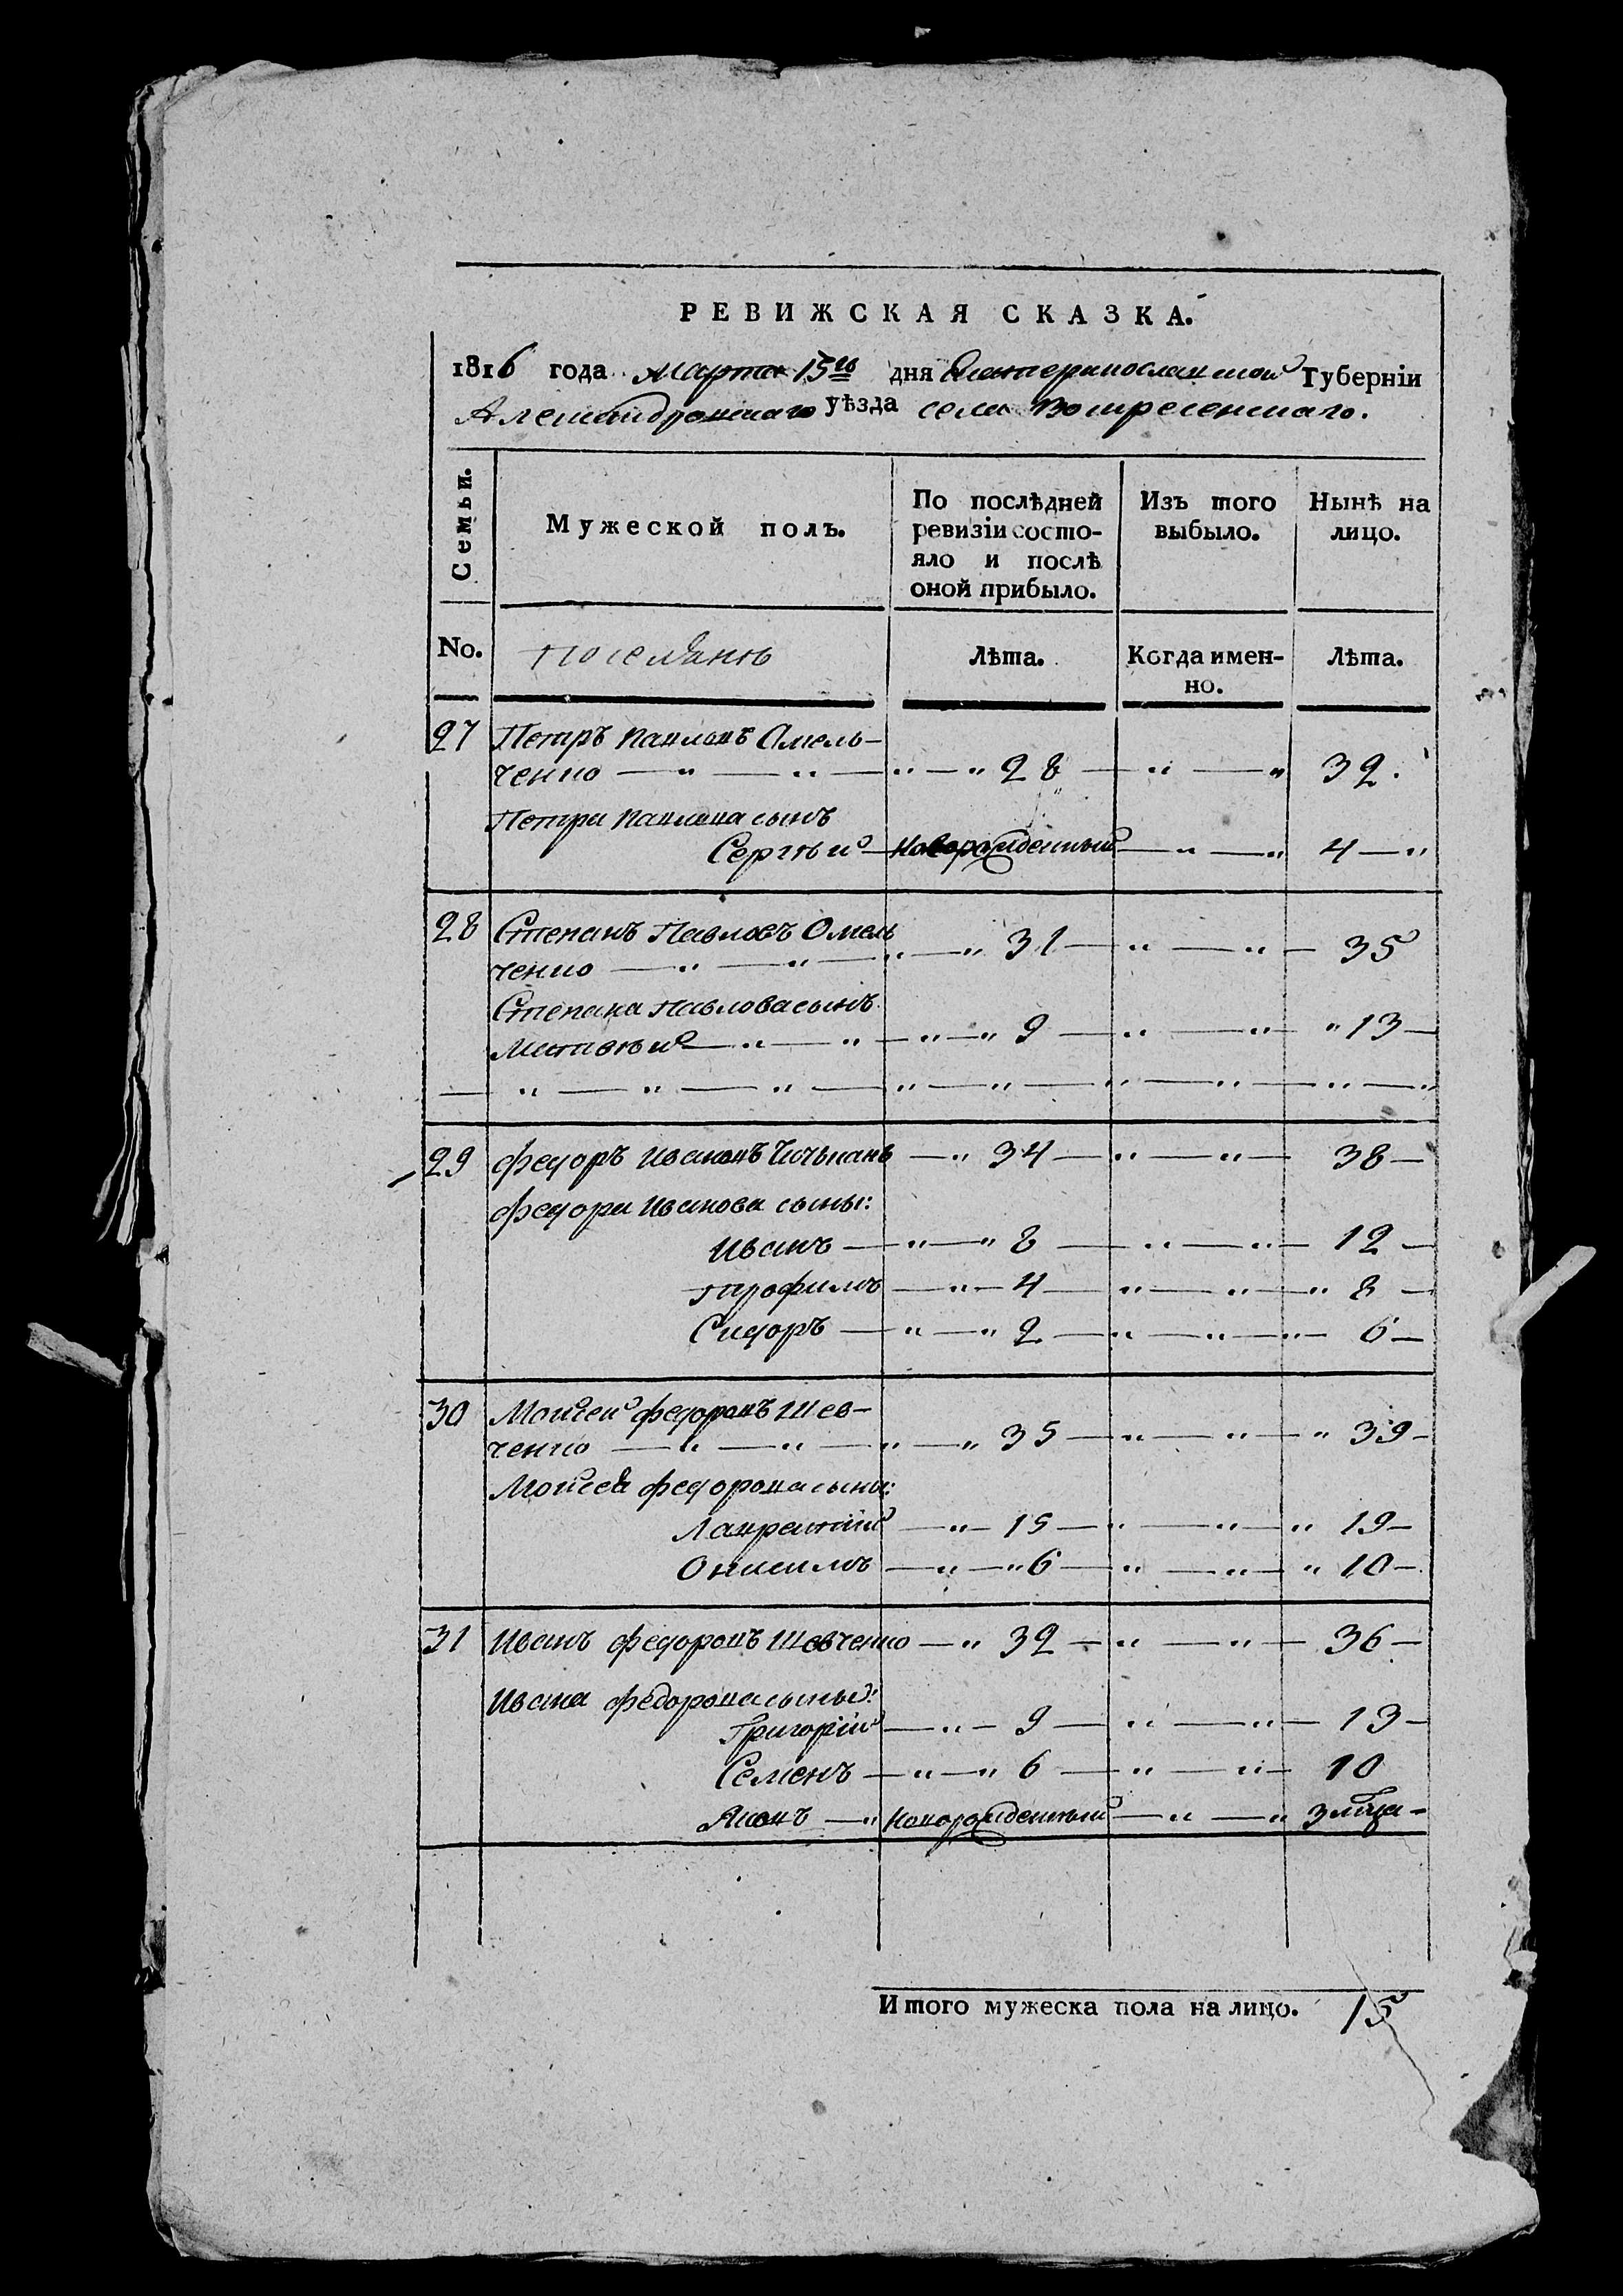 РЕВИЖСКАЯ СКАЗКА.
1816 года Марта 15го дня Екатеринославской Губерніи
Александровскаго уѣзда села Воскресенскаго.
Семьи. Мужеской полъ. По послѣдней ревизіи состояло и послѣ оной прибыло. Изъ того выбыло. Нынѣ на лицо.
No. Поселянъ Лѣта. Когда именно. Лѣта.
27 Петръ Павловъ Амель-
ченко — " — " — " — " 28 — " — " 32.
Петра Павлова сынъ
Сергѣй — Новорожденный — " — " 4 — "
28 Степанъ Павловъ Омель
ченко — " — " — " — " 31 — " — " — 35
Степана Павлова сынъ
Матвѣй — " — " — " — " 9 — " — " — " 13 —
— " — " — " — " — " — " — " — " — "
29 Федоръ Ивановъ — " 34 — " — " — 38 —
Федора Иванова сыны:
Иванъ — " — " 8 — " — " — 12 —
Трофимъ — " — 4 — " — " — " 8 —
Сидоръ — " — " 2 — " — " — " — 6 —
30 Моисей Федоровъ Шев-
ченко — " — " — " — " 35 — " — " — " 39 —
Моисея Федорова сыны:
Лаврентій — " — 15 — " — " — " 19 —
Онисимъ — " — " 6 — " — " — " 10 —
31 Иванъ Федоровъ Шевченко — " 32 — " — " — 36 —
Ивана Федорова сыны:
Григорій — " — 9 — " — " — 13 —
Семенъ — " — " 6 — " — " — 10
Яковъ — " Новорожденный — " — " 3 мѣца —
Итого мужеска пола на лицо. 15